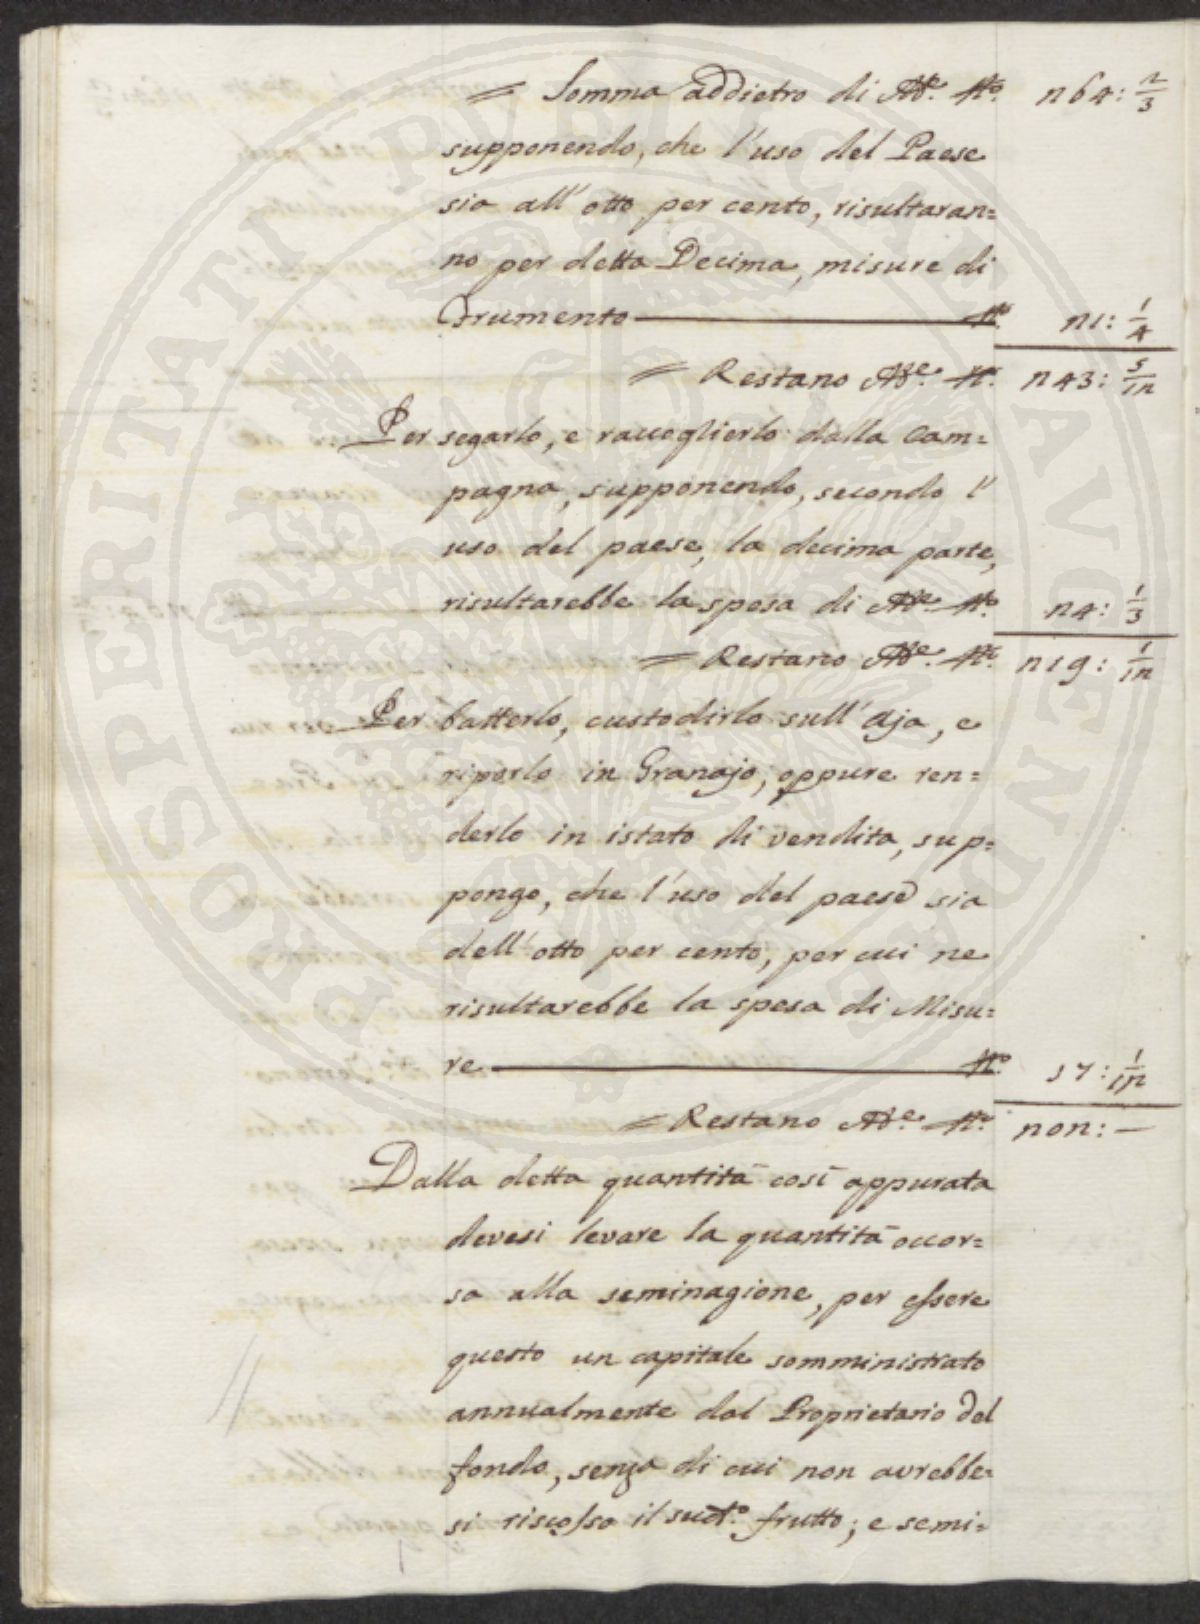 = Somma addietro di M.e N.o 264: 2/3
supponendo, che l'uso del Paese
sia all'otto per cento, risultaran=
no per detta Decima, misure di
Frumento — N.o 21: 1/4
= Restano M.e N.o 243: 5/12
Per segarlo, e raccoglierlo dalla Cam=
pagna, supponendo, secondo l'
uso del paese, la decima parte,
risultarebbe la spesa di M.e N.o 24: 1/3
= Restano M.e N.o 219: 1/12
Per batterlo, custodirlo sull'Aja, e
riporlo in Granajo, oppure ren=
derlo in istato di vendita, sup=
pongo, che l'uso del paese sia
dell'otto per cento, per cui ne
risultarebbe la spesa di Misu=
re — N.o 17: 1/12
= Restano M.e N.o 202: —
Dalla detta quantità così appurata
devesi levare la quantità occor=
sa alla seminagione, per essere
questo un capitale somministrato
annualmente dal Proprietario del
fondo, senza di cui non avrebbe=
si riscosso il sud.to frutto; e semi=
PROSPERITATI PUBLICAE AVGENDAE